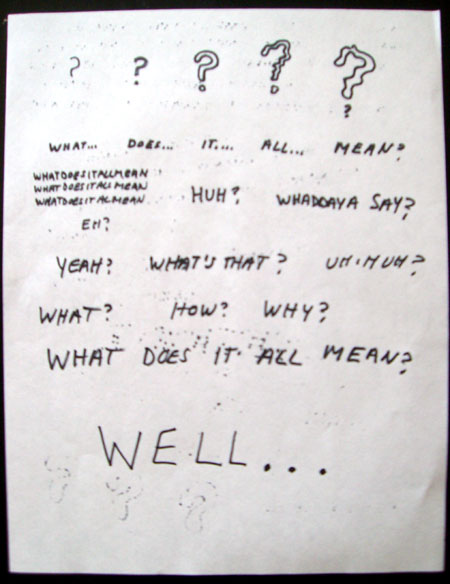 ? ? ? ? ?
?
WHAT... DOES... IT.... ALL... MEAN?
WHATDOESITALLMEAN
WHATDOESITALLMEAN
WHATDOESITALMEAN
HUH? WHADDAYA SAY?
EH?
YEAH? WHAT'S THAT? UH-HUH?
WHAT? HOW? WHY?
WHAT DOES IT ALL MEAN?
WELL...
? ? ?